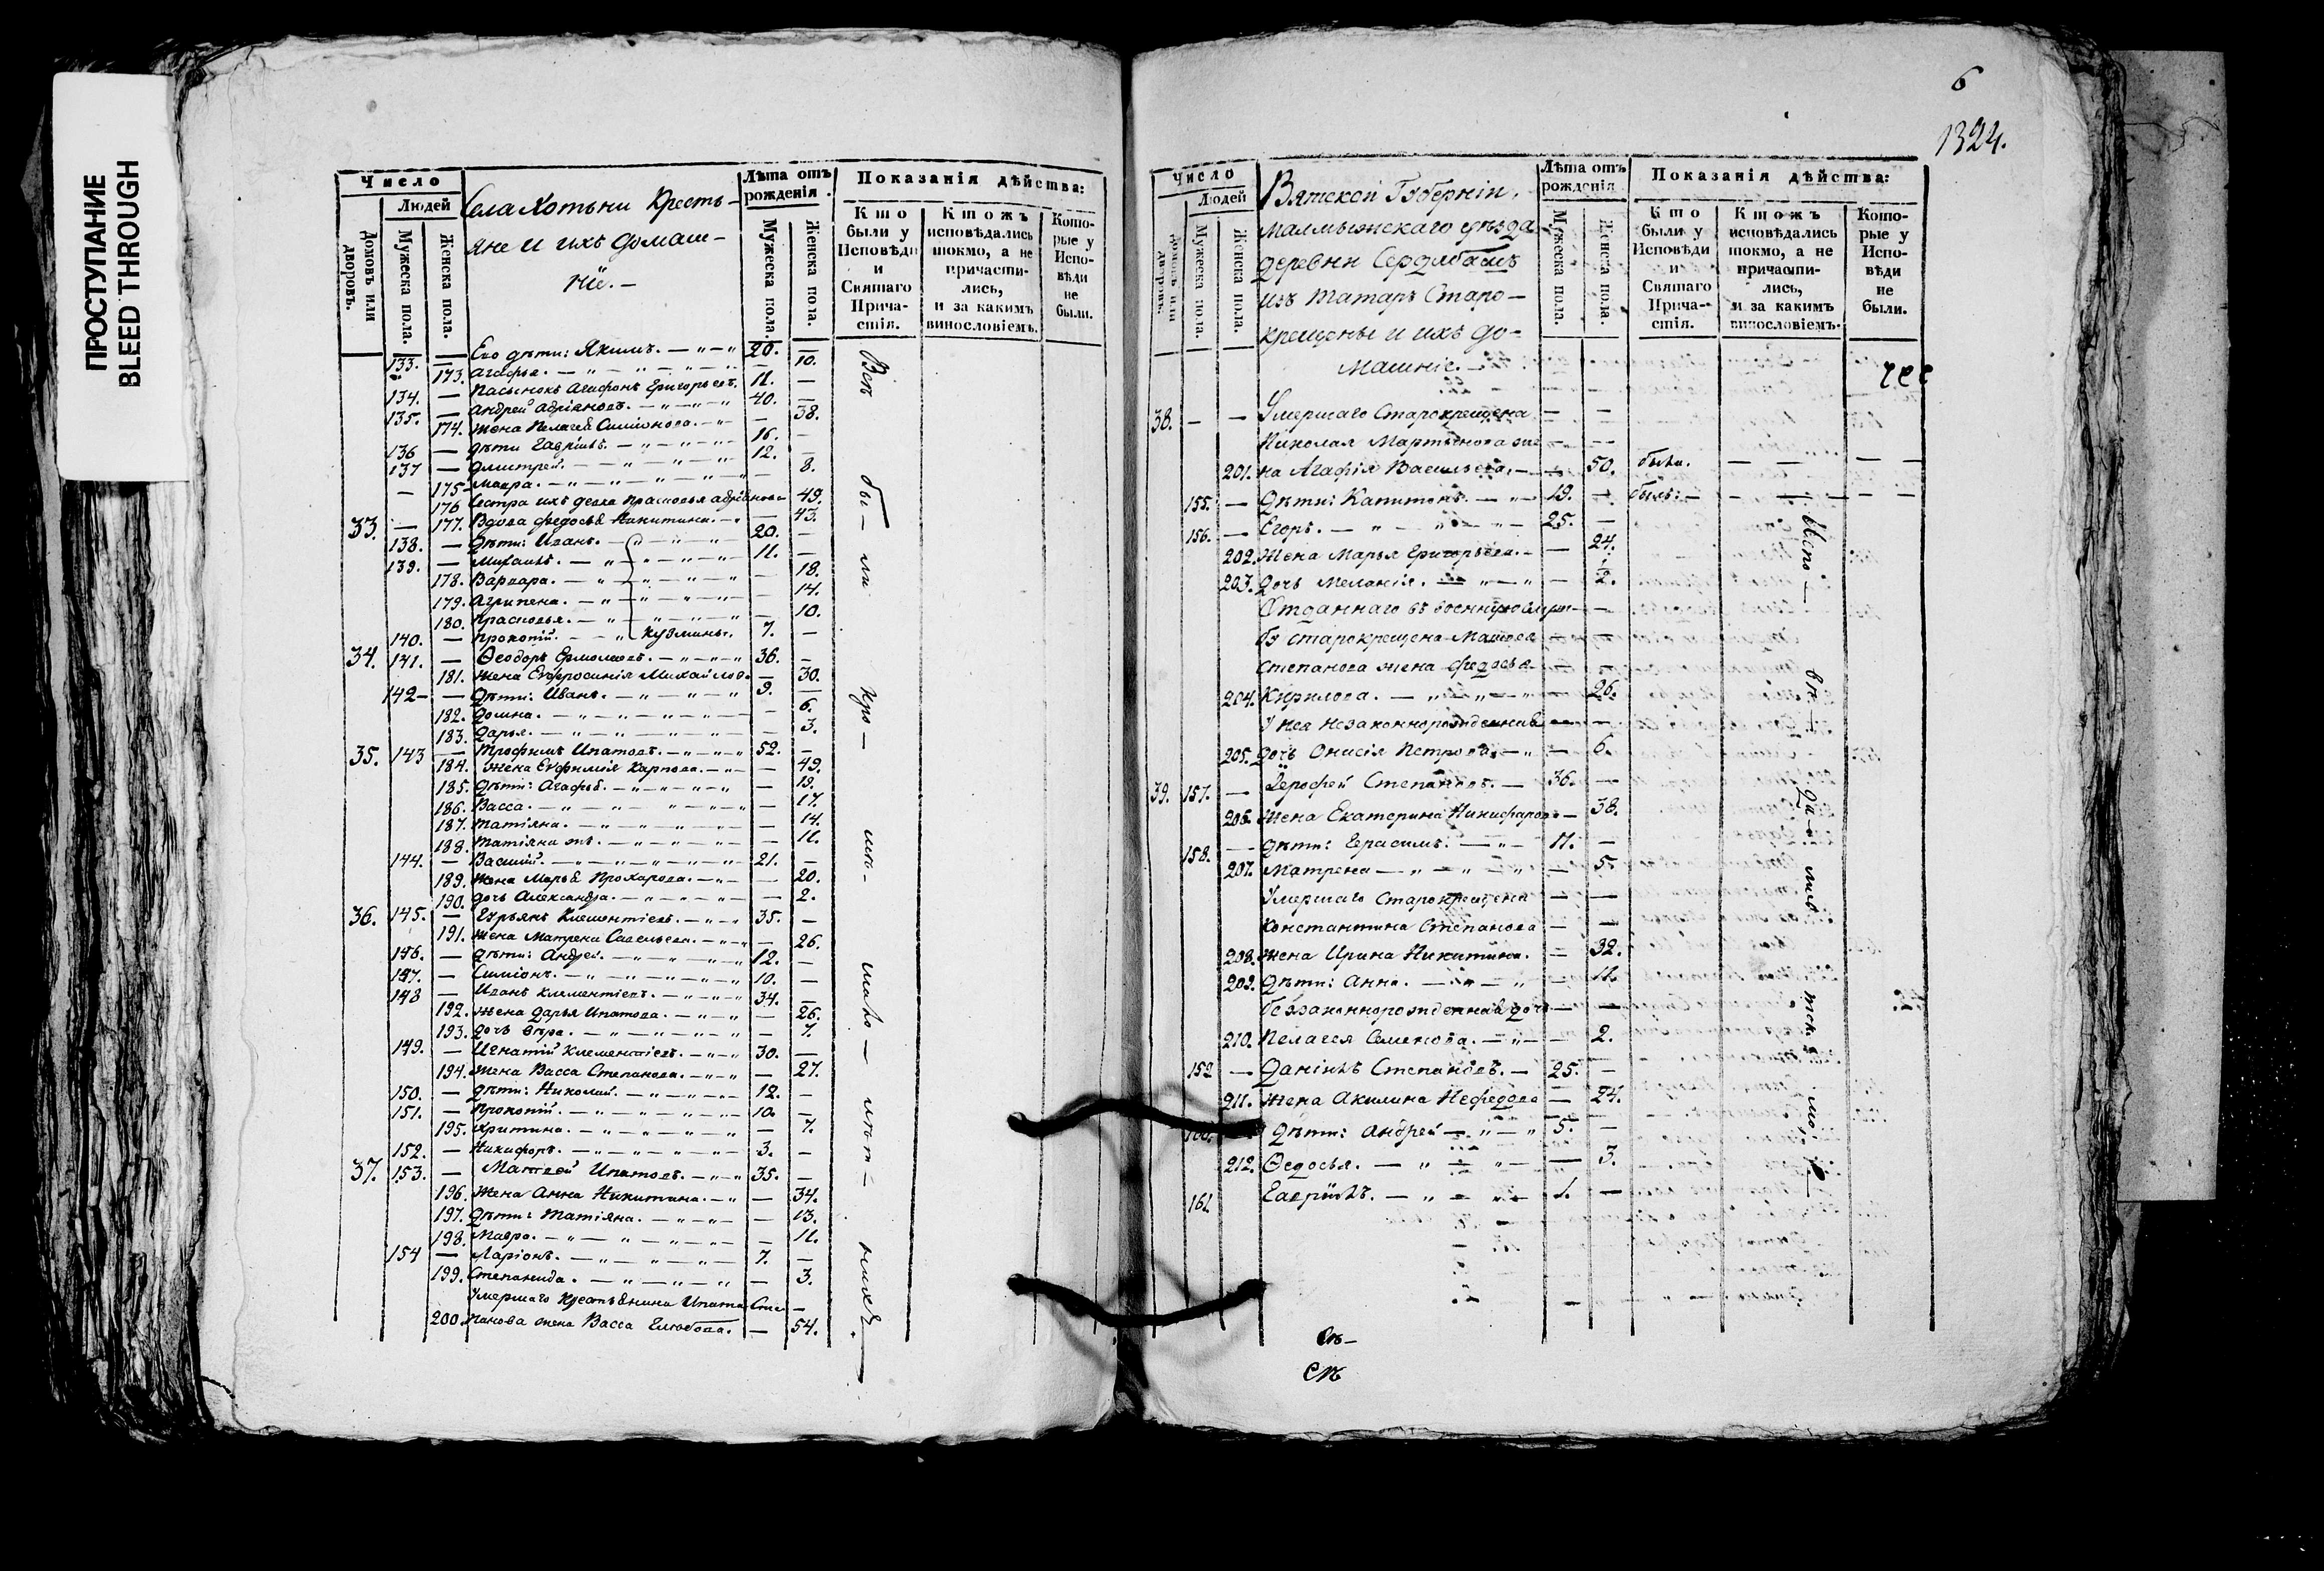 ПРОСТУПАНИЕ
BLEED THROUGH
Число
Людей
Домовъ или дворовъ.
Мужеска пола.
Женска пола.
Села Хотьни Кресть-
яне и ихъ домаш-
ніе. —
Лѣта отъ рожденія.
Мужеска пола.
Женска пола.
Показанія дѣйства:
Кто были у Исповѣди и Святаго Прича-стія.
Ктожъ исповѣдались токмо, а не причасти-лись, и за какимъ винословіемъ.
Кото-рые у Испо-вѣди не были.
133. — Его дѣти: Якимъ. 20. —
173. Агафья. — 10.
134. — Пасынокъ Агафонъ Григорьевъ. 11. —
135. — Андрей Адріановъ. 40. —
174. Жена Пелагея Симіонова. — 38.
136 — Дѣти Гавріилъ. 16. —
137 — Дмитрей. 12. —
175. Мавра. — 8.
— 176 Сестра ихъ девка Прасковья Адріанова 49.
33. — 177. Вдова Федосья Никитина. — 43.
138. — Дѣти: Иванъ. 20. —
139. — Михаилъ. 11. —
178. Варвара. — 18.
179. Агрипена. — 14.
180. Прасковья. — 10.
140. — Прокопій. Кузмины. 7. —
34. 141. — Ѳеодоръ Ермолаевъ. 36. —
181. Жена Евфросинія Михайлов. — 30.
142 — — Дѣти: Иванъ. 9. —
182. Домна. — 6.
183. Дарья. — 3.
35. 143 — Трофимъ Ипатовъ. 52. —
184. Жена Евфимія Карпова. — 49.
185. Дѣти: Агафья. — 19.
186. Васса. — 17.
187. Татіяна. — 14.
188. Татіяна же. — 11.
144. — Василій. 21. —
189. Жена Марья Прохарова. — 20.
190. дочь Александра. — 2.
36. 145. — Гурьянъ Клементіевъ. 35. —
191. Жена Матрена Савельева. — 26.
146. — Дѣти: Андрей. 12. —
147. — Симіонъ. 10. —
148 — Иванъ Клементіевъ. 34. —
192. Жена Дарья Ипатова. — 26.
193. дочь Вѣра. — 7.
149. — Игнатій Клементіевъ. 30. —
194. Жена Васса Степанова. — 27.
150. — Дѣти: Николай. 12. —
151. — Прокопій. 10. —
195. Хритина. — 7.
152. — Никифоръ. 3. —
37. 153. — Матвей Ипатовъ. 35. —
196. Жена Анна Никитина. — 34.
197. Дѣти: Татіяна. — 13.
198. Мавра. — 11.
154 — Ларіонъ. 7. —
199. Степанида. — 3.
Умершаго Крестьянина Ипата Сте —
200. панова жена Васса Глебова. — 54.
Всѣ бы — ли
6
1324.
Число
Людей
Домовъ или дворовъ.
Мужеска пола.
Женска пола.
Вятской Губерніи,
малмыжскаго уѣзда
деревни Сердлбашъ
изъ татаръ Старо —
крещены и ихъ до-
машніе. —
Лѣта отъ рожденія
Мужеска пола.
Женска пола.
Показанія дѣйства:
Кто были у Исповѣди и Святаго Прича-стія.
Ктожъ исповѣдались токмо, а не причасти-лись, и за какимъ винословіемъ.
Кото-рые у Испо-вѣди не были.
38. — — Умершаго Старокрещена — —
Николая Мартынова же — —
201. на Агафія Васильева. — 50. была. — — — —
155. — Дѣти: Капитонъ. 19. — былъ: — — — — —
156. — Егоръ. 25. —
202. Жена Марья Григорьева. — 24.
203. дочь Меланія. — 1/2.
Отданнаго въ военную служ — —
бу старокрещена Матвея — —
Степанова жена Федосья — —
204. Кирилова. — 26.
У нея незаконнорожденная — —
205. дочь Онисія Петрова. — 6.
39. 157. — Іерофей Степановъ. — 36. —
206. Жена Екатерина Никифарова — 38.
158. — дѣти: Герасимъ. 11. —
207. Матрена — 5.
Умершаго Старокрещена — —
Константина Степанова — —
208. Жена Ирина Никитина. — 32.
209. Дѣти: Анна. — 11.
безаконнорожденная дочь — —
210. Пелагея Семенова. — 2.
159 — Даніилъ Степановъ. — 25. —
211. Жена Акилина Нефедова — 24.
160. Дѣти: Андрей — 5. —
212. Ѳедосья. — 3.
161 Гавріилъ. 1. —
Испо — вѣ — да — лись